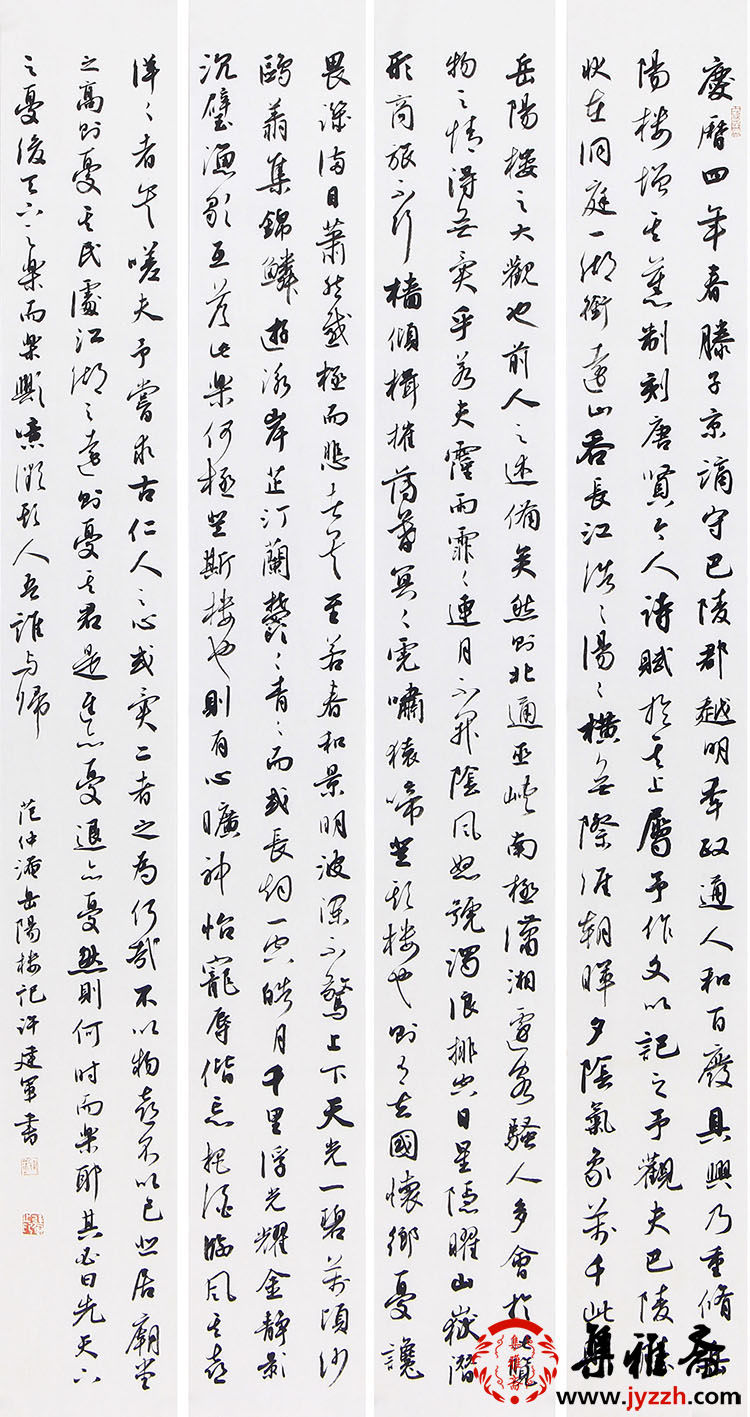 慶曆四年春滕子京謫守巴陵郡越明年政通人和百廢具興乃重脩岳
陽樓增其舊制刻唐賢今人詩賦於其上屬予作文以記之予觀夫巴陵
狀在洞庭一湖銜遠山吞長江浩〻湯〻橫無際涯朝暉夕陰氣象萬千此
岳陽樓之大觀也前人之述備矣然則北通巫峽南極瀟湘遷客騷人多會於此覽
物之情得無異乎若夫霪雨霏〻連月不開陰風怒號濁浪排空日星隱曜山嶽潛
形商旅不行檣傾楫摧薄暮冥〻虎嘯猿啼登斯樓也則有去國懷鄉憂讒
畏譏滿目蕭然感極而悲者矣至若春和景明波瀾不驚上下天光一碧萬頃沙
鷗翔集錦鱗游泳岸芷汀蘭鬱〻青〻而或長烟一空皓月千里浮光耀金靜影
沉璧漁歌互答此樂何極登斯樓也則有心曠神怡寵辱偕忘把酒臨風其喜
洋〻者矣嗟夫予嘗求古仁人之心或異二者之為何哉不以物喜不以己悲居廟堂
之高則憂其民處江湖之遠則憂其君是進亦憂退亦憂然則何時而樂耶其必曰先天下
之憂後天下之樂而樂歟噫微斯人吾誰與歸
范仲淹岳陽樓記許建軍書
集雅齋
www.jyzzh.com